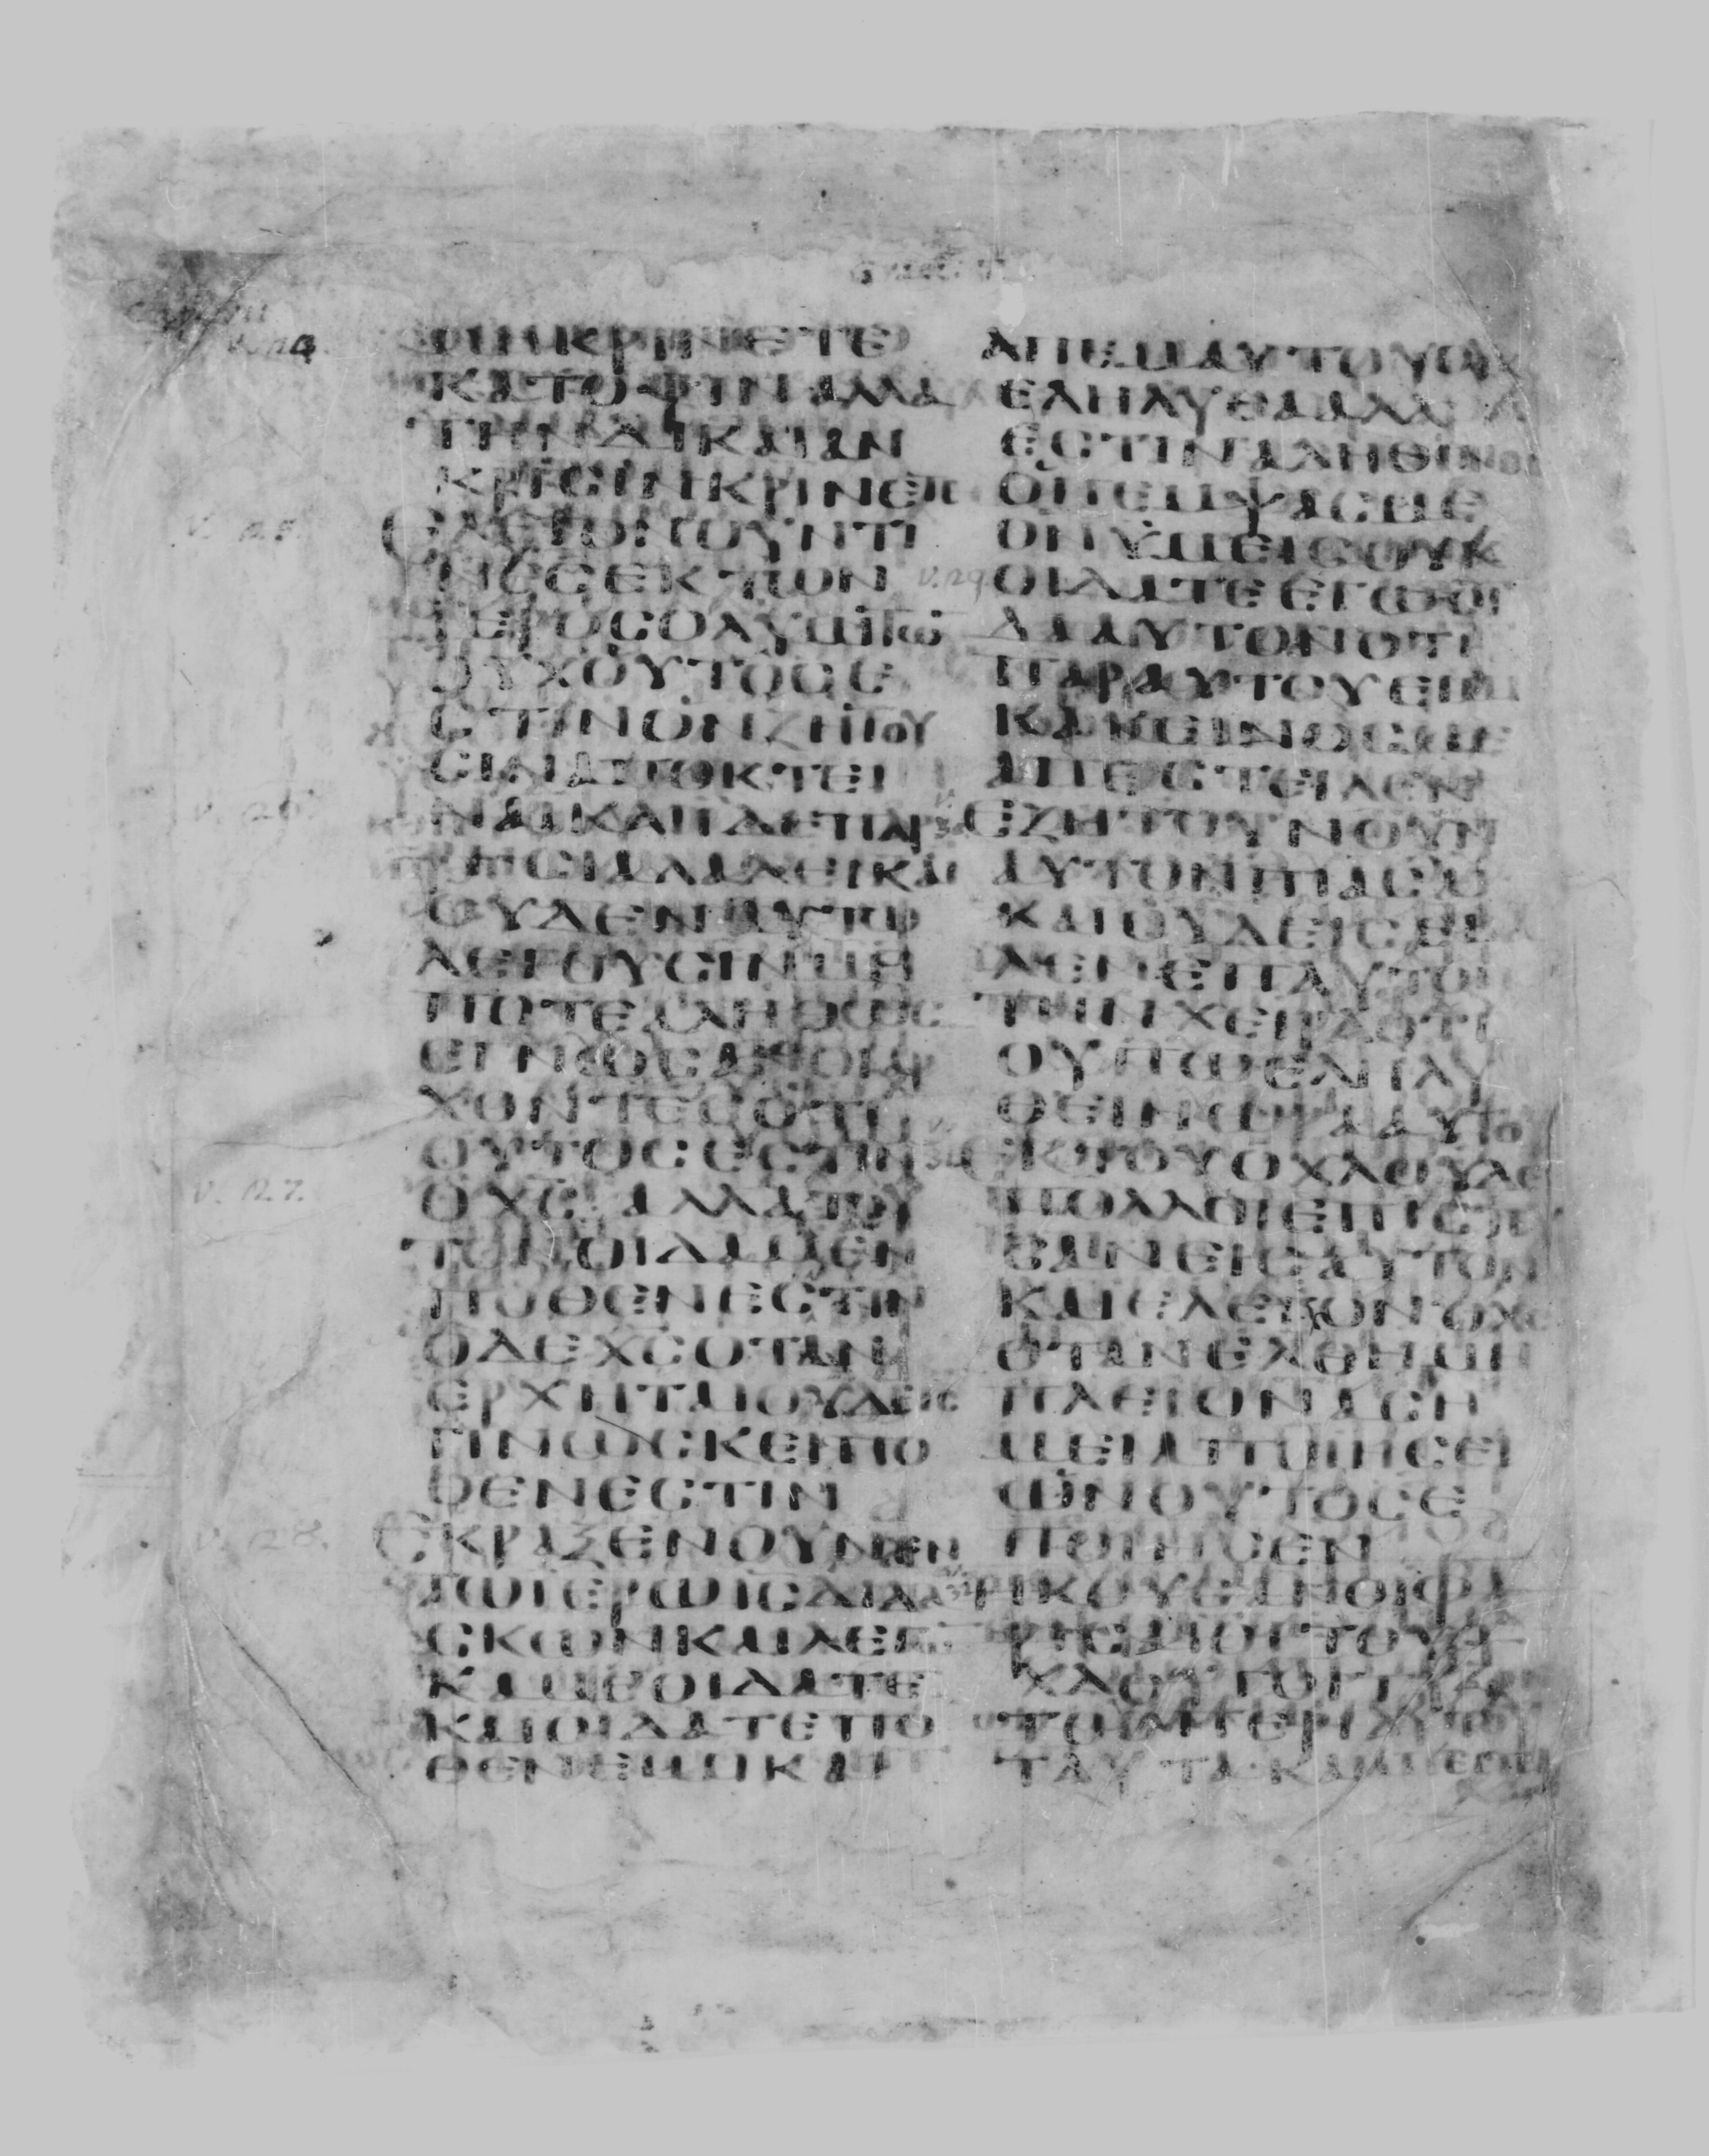 ΜΗΚΡΙΝΕΤΕ
ΚΑΤΟΨΙΝΑΛΛΑ
ΤΗΝΔΙΚΑΙΑΝ
ΚΡΙСΙΝΚΡΙΝΕΤΕ
ΕΛΕΓΟΝΟΥΝΤΙ
ΝΕСΕΚΤΩΝ
ΙΕΡΟСΟΛΥΜΙΤΩ
ΟΥΧΟΥΤΟСΕ
СΤΙΝΟΝΖΗΤΟΥ
СΙΝΑΠΟΚΤΕΙ
ΝΑΙΚΑΙΙΔΕΠΑΡ
ΡΗСΙΑΛΑΛΕΙΚΑΙ
ΟΥΔΕΝΑΥΤΩ
ΛΕΓΟΥСΙΝΜΗ
ΠΟΤΕΑΛΗΘΩС
ΕΓΝΩСΑΝΟΙΑΡ
ΧΟΝΤΕСΟΤΙ
ΟΥΤΟСΕСΤΙΝ
ΟΧС ΑΛΛΑΤΟΥ
ΤΟΝΟΙΔΑΜΕΝ
ΠΟΘΕΝΕСΤΙΝ
ΟΔΕΧСΟΤΑΝ
ΕΡΧΗΤΑΙΟΥΔΕΙС
ΓΙΝΩСΚΕΙΠΟ
ΘΕΝΕСΤΙΝ
ΕΚΡΑΞΕΝΟΥΝΕΝ
ΤΩΙΕΡΩΙСΔΙΔΑ
СΚΩΝΚΑΙΛΕΓΩ
ΚΑΜΕΟΙΔΑΤΕ
ΚΑΙΟΙΔΑΤΕΠΟ
ΘΕΝΕΙΜΙΚΑΙ
ΑΠΕΜΑΥΤΟΥΟΥΚ
ΕΛΗΛΥΘΑΑΛΛ
ΕСΤΙΝΑΛΗΘΙΝΟС
ΟΠΕΜΨΑСΜΕ
ΟΝΥΜΕΙСΟΥΚ
v. 29. ΟΙΔΑΤΕΕΓΩΟΙ
ΔΑΑΥΤΟΝΟΤΙ
ΠΑΡΑΥΤΟΥΕΙΜΙ
ΚΑΚΕΙΝΟСΜΕ
ΑΠΕСΤΕΙΛΕΝ
ΕΖΗΤΟΥΝΟΥΝ
ΑΥΤΟΝΠΙΑСΑΙ
ΚΑΙΟΥΔΕΙСΕΒΑ
ΛΕΝΕΠΑΥΤΟΝ
ΤΗΝΧΕΙΡΑΟΤΙ
ΟΥΠΩΕΛΗΛΥ
ΘΕΙΗΩΡΑΑΥΤΟΥ
ΕΚΤΟΥΟΧΛΟΥΔΕ
ΠΟΛΛΟΙΕΠΙСΤΕΥ
СΑΝΕΙСΑΥΤΟΝ
ΚΑΙΕΛΕΓΟΝΟΧС
ΟΤΑΝΕΛΘΗΜΗ
ΠΛΕΙΟΝΑСΗ
ΜΕΙΑΠΟΙΗСΕΙ
ΩΝΟΥΤΟСΕ
ΠΟΙΗСΕΝ
ΗΚΟΥСΑΝΟΙΦΑ
ΡΙСΑΙΟΙΤΟΥΟ
ΧΛΟΥΓΟΓΓΥΖΟΝ
ΤΟСΠΕΡΙΑΥΤΟΥ
ΤΑΥΤΑΚΑΙΑΠΕСΤΙ